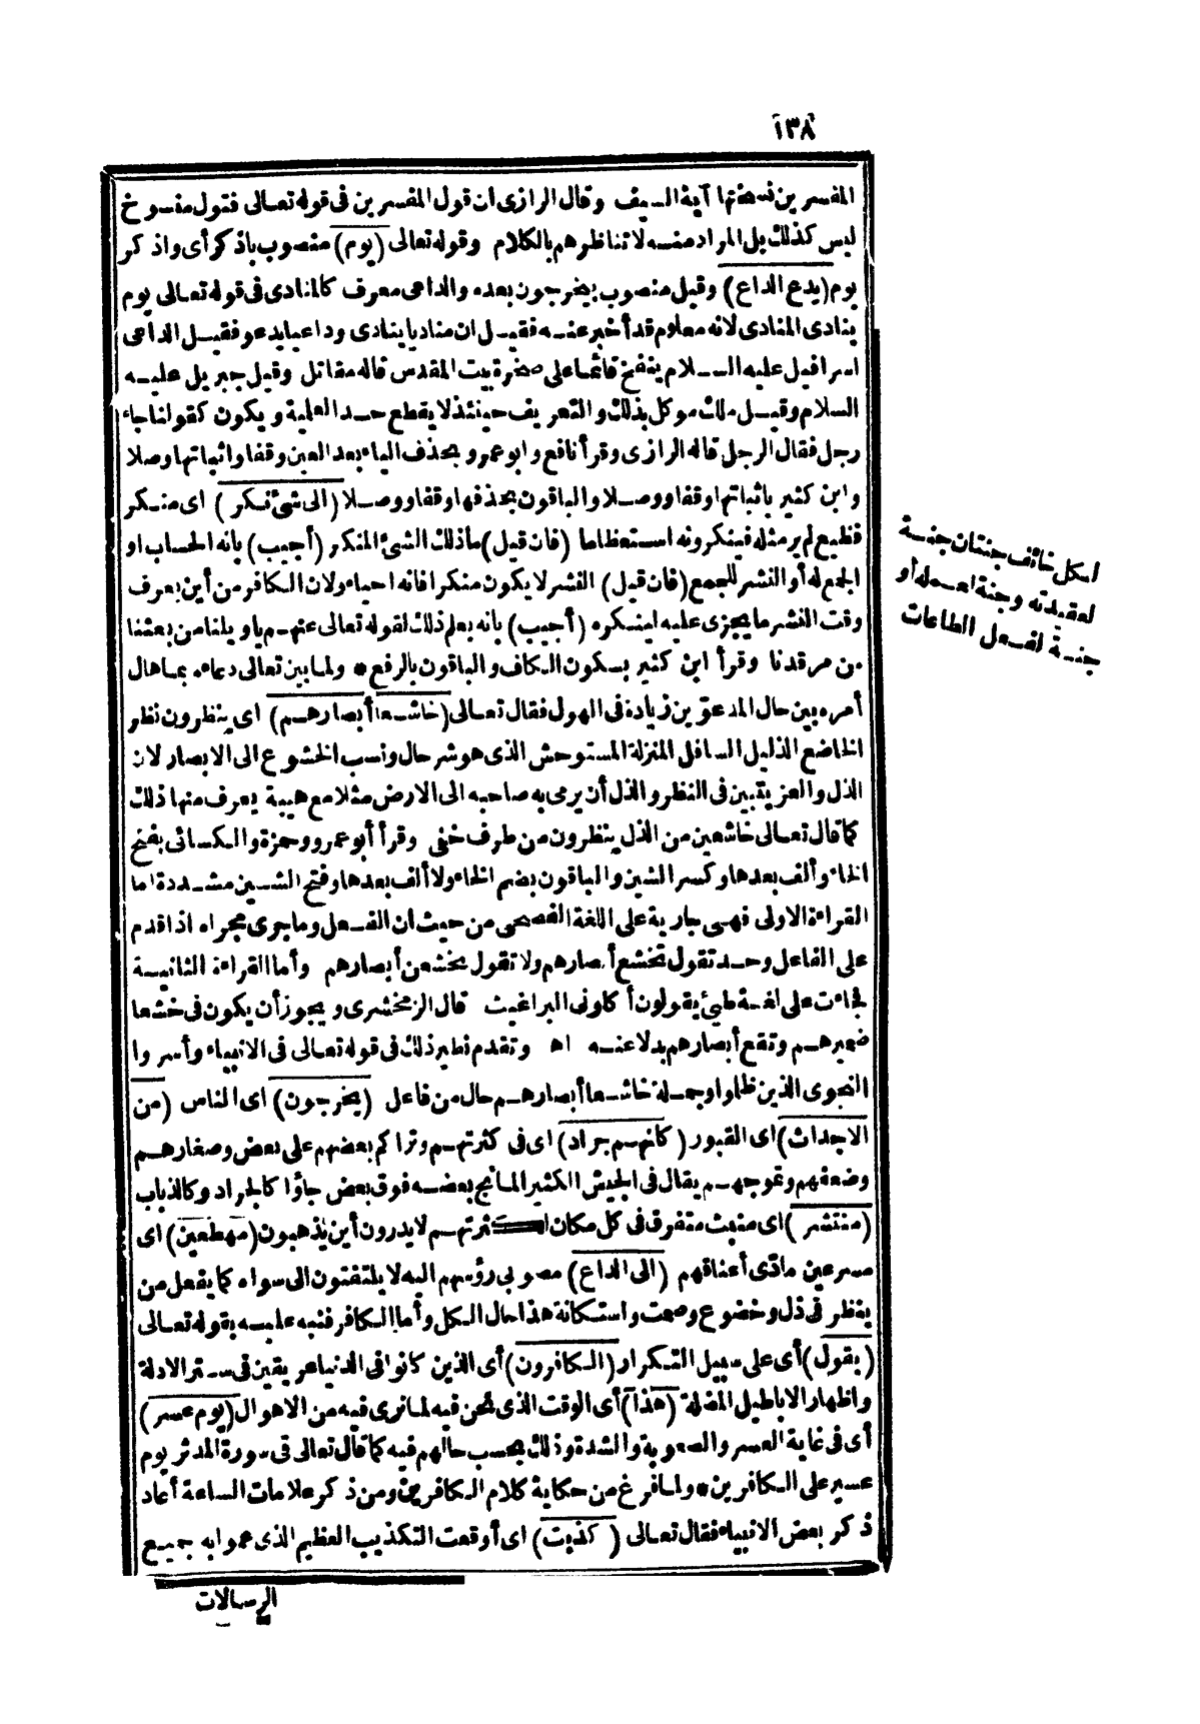 ١٣٨
المفسرين نسختها آية السيف وقال الرازى ان قول المفسرين فى قوله تعالى فتول منسوخ
ليس كذلك بل المراد منه لا تناظرهم بالكلام وقوله تعالى (يوم) منصوب باذكر أى واذكر
يوم (يدع الداع) وقيل منصوب بيخرجون بعده والداعى معرف كالمنادى فى قوله تعالى يوم
ينادى المنادى لانه معلوم قد أخبر عنه فقيل ان مناديا ينادى وداعيا يدعو فقيل الداعى
اسرافيل عليه السلام ينفخ قائما على صخرة بيت المقدس قاله مقاتل وقيل جبريل عليه
السلام وقيل ملك موكل بذلك والتعريف حينئذ لا يقطع حد العلمية ويكون كقولنا جاء
رجل فقال الرجل قاله الرازى وقرأ نافع وابو عمرو بحذف الياء بعد العين وقفا واثباتها وصلا
وابن كثير باثباتها وقفا ووصلا والباقون بحذفها وقفا ووصلا (الى شئ نكر) اى منكر
فظيع لم ير مثله فينكرونه استعظاما (فان قيل) ما ذلك الشئ المنكر (أجيب) بانه الحساب او
الجمع له أو النشر للجمع (فان قيل) النشر لا يكون منكرا فانه احياء ولان الكافر من أين يعرف
وقت النشر ما يجزى عليه لينكره (أجيب) بانه يعلم ذلك لقوله تعالى عنهم يا ويلنا من بعثنا
من مرقدنا وقرأ ابن كثير بسكون الكاف والباقون بالرفع * ولما بين تعالى دعاءه بما هال
أمره بين حال المدعوّين زيادة فى الهول فقال تعالى (خاشعا أبصارهم) اى ينظرون نظر
الخاضع الذليل السافل المنزلة المستوحش الذى هو شر حال ونسب الخشوع الى الابصار لان
الذل والعز يتبين فى النظر والذل أن يرمى به صاحبه الى الارض مثلا مع هيبة يعرف منها ذلك
كما قال تعالى خاشعين من الذل ينظرون من طرف خفى وقرأ أبو عمرو وحمزة والكسائى بفتح
الخاء وألف بعدها وكسر الشين والباقون بضم الخاء ولا ألف بعدها وفتح الشين مشددة اما
القراءة الاولى فهى جارية على اللغة الفصحى من حيث ان الفعل وما جرى مجراه اذا قدم
على الفاعل وحد تقول تخشع أبصارهم ولا تقول يخشعن أبصارهم وأما القراءة الثانية
فجاءت على لغة طيئ يقولون أكلونى البراغيث قال الزمخشرى ويجوز أن يكون فى خشعا
ضميرهم وتقع أبصارهم بدلا عنه اه وتقدم نظير ذلك فى قوله تعالى فى الانبياء وأسروا
النجوى الذين ظلموا وجملة خاشعا أبصارهم حال من فاعل (يخرجون) اى الناس (من
الاجداث) اى القبور (كانهم جراد) اى فى كثرتهم وتراكم بعضهم على بعض وصغارهم
وضعفهم وتموجهم يقال فى الجيش الكثير المائج بعضه فوق بعض جاؤا كالجراد وكالذباب
(منتشر) اى منبث متفرق فى كل مكان لكثرتهم لا يدرون أين يذهبون (مهطعين) اى
مسرعين مادّى أعناقهم (الى الداع) مصوبى رؤسهم اليه لا يلتفتون الى سواه كما يفعل من
ينظر فى ذل وخضوع وصمت واستكانة هذا حال الكل وأما الكافر فنبه عليه بقوله تعالى
(يقول) أى على سبيل التكرار (الكافرون) أى الذين كانوا فى الدنيا عريقين فى ستر الادلة
واظهار الاباطيل المضلة (هذا) أى الوقت الذى نحن فيه لما نرى فيه من الاهوال (يوم عسر)
أى فى غاية العسر والصعوبة والشدة وذلك بحسب حالهم فيه كما قال تعالى فى سورة المدثر يوم
عسير على الكافرين * ولما فرغ من حكاية كلام الكافرين ومن ذكر علامات الساعة أعاد
ذكر بعض الانبياء فقال تعالى (كذبت) اى أوقعت التكذيب العظيم الذى عموا به جميع
الرسالات
لكل خائف جنتان جنة
لعقيدته وجنة لعمله أو
جنة لفعل الطاعات